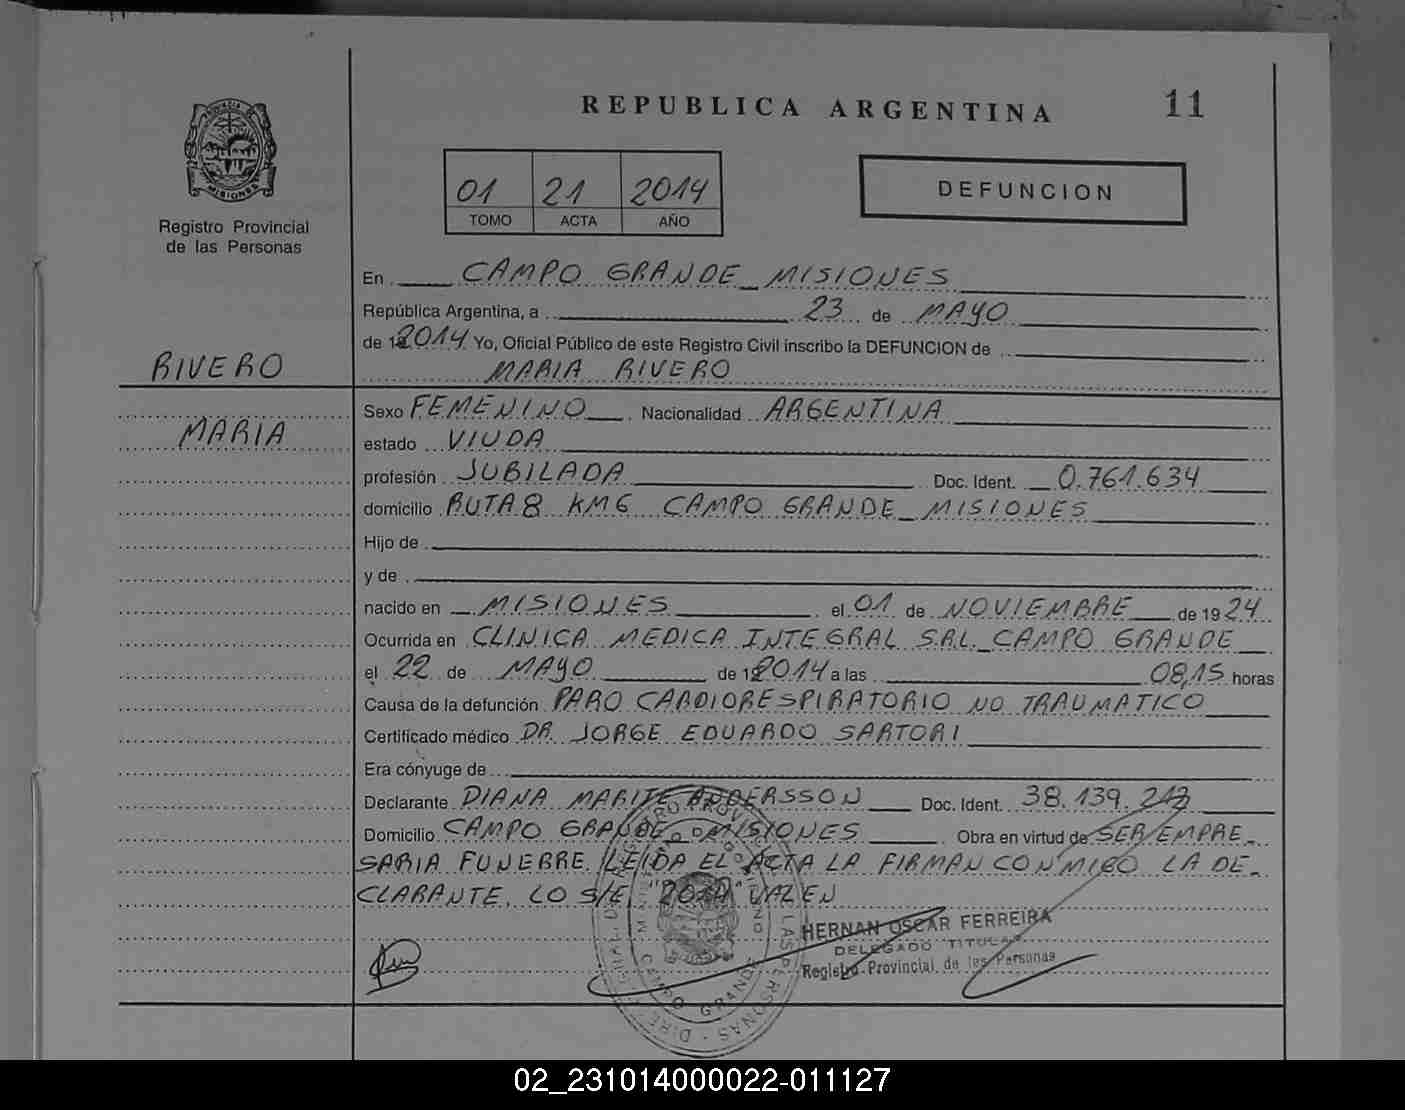 REPUBLICA ARGENTINA
11
PROVINCIA DE
MISIONES
Registro Provincial
de las Personas
01 21 2014
TOMO ACTA AÑO
DEFUNCION
En CAMPO GRANDE - MISIONES
República Argentina, a 23 de MAYO
de 2014 Yo, Oficial Público de este Registro Civil inscribo la DEFUNCION de
RIVERO
MARIA RIVERO
Sexo FEMENINO Nacionalidad ARGENTINA
MARIA
estado VIUDA
profesión JUBILADA Doc. Ident. 0.761.634
domicilio RUTA 8 KM 6 CAMPO GRANDE - MISIONES
Hijo de
y de
nacido en MISIONES el 01 de NOVIEMBRE de 1924
Ocurrida en CLINICA MEDICA INTEGRAL S.R.L. CAMPO GRANDE
el 22 de MAYO de 2014 a las 08,15 horas
Causa de la defunción PARO CARDIORESPIRATORIO NO TRAUMATICO
Certificado médico DR. JORGE EDUARDO SARTORI
Era cónyuge de
Declarante DIANA MARITE ANDERSSON Doc. Ident. 38.139.213
Domicilio CAMPO GRANDE - MISIONES Obra en virtud de SER EMPRE-
SARIA FUNEBRE. LEIDA EL ACTA LA FIRMAN CONMIGO LA DE-
CLARANTE. LO S/E "2014" VALEN
HERNAN OSCAR FERREIRA
DELEGADO TITULAR
Registro Provincial de las Personas
CAMPO GRANDE
02_231014000022-011127